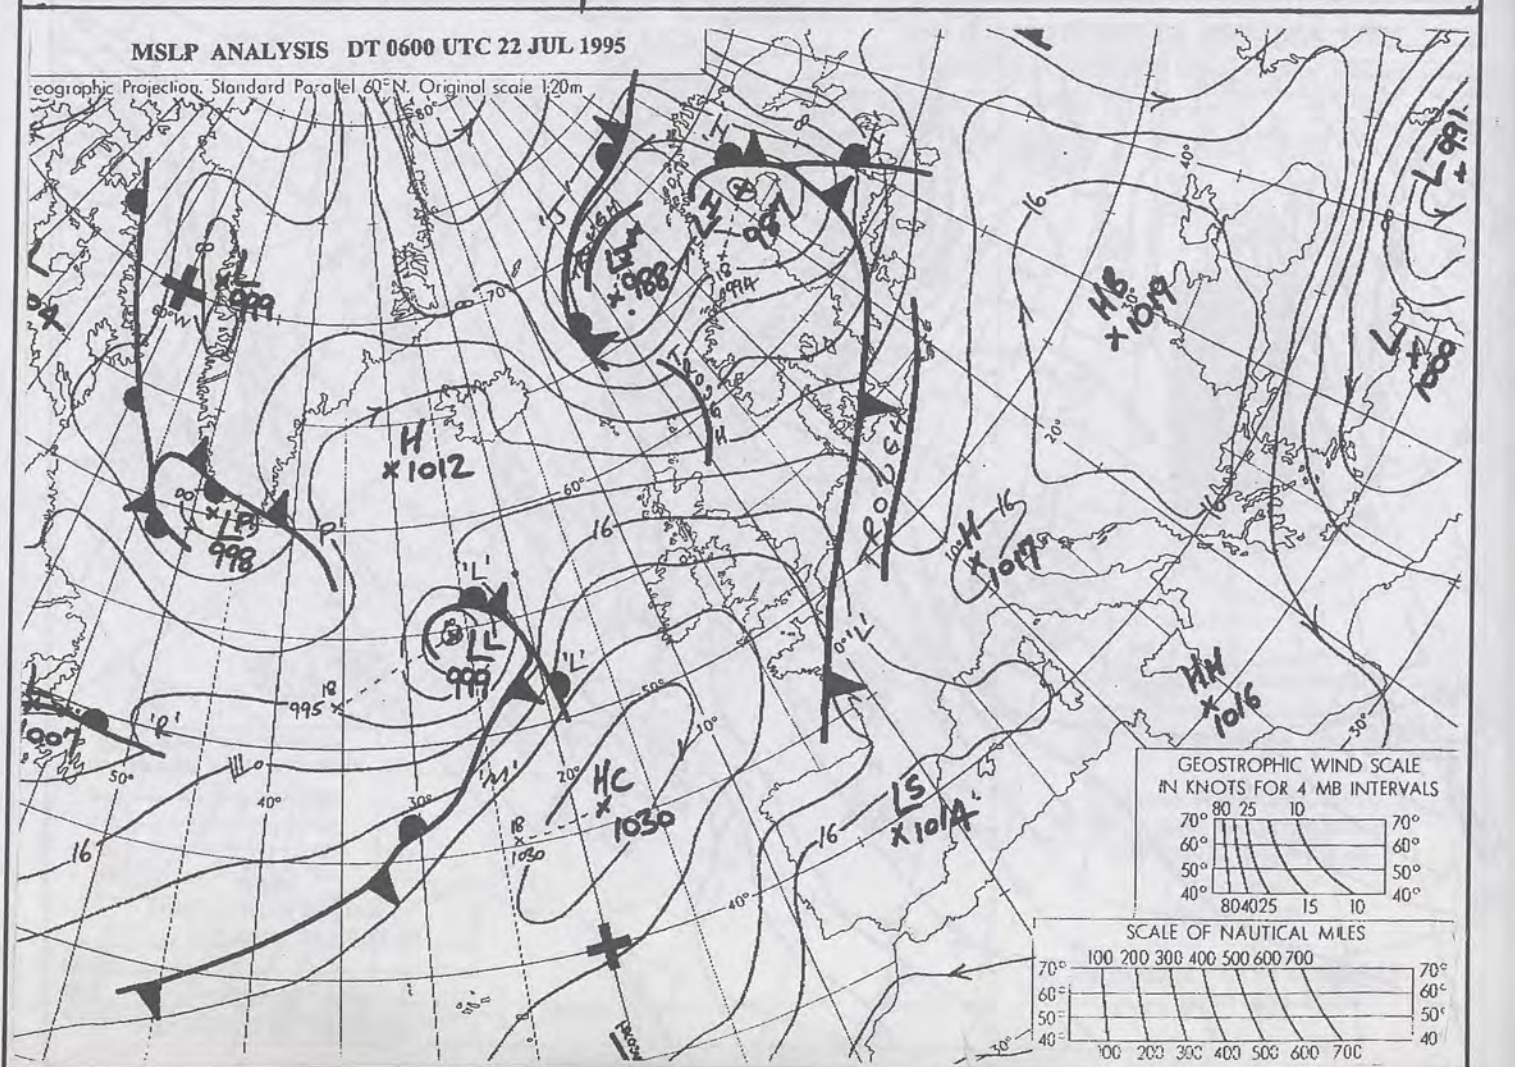 MSLP ANALYSIS DT 0600 UTC 22 JUL 1995
eographic Projection. Standard Parallel 60°N. Original scale 1:20m
80°
8
'J'
TROUGH
L
988
L
987
H
18
991A
70°
L
999
60°
8
H
1012
60°
16
HB
1019
30°
40°
16
20°
16
L 991
L
1000
LP
998
'P'
'L'
LL
999
'L'
18
995
TROUGH
TROUGH
H 16
1017
10°
'L'
0°
HH
1016
30°
'P'
1007
50°
40°
30°
'M'
20°
50°
10°
HC
1030
18
1030
16
16
LS
1014
40°
30°
GEOSTROPHIC WIND SCALE
IN KNOTS FOR 4 MB INTERVALS
80 25 10
70° 70°
60° 60°
50° 50°
40° 40°
804025 15 10
SCALE OF NAUTICAL MILES
100 200 300 400 500 600 700
70° 70°
60° 60°
50° 50°
40° 40
100 200 300 400 500 600 700